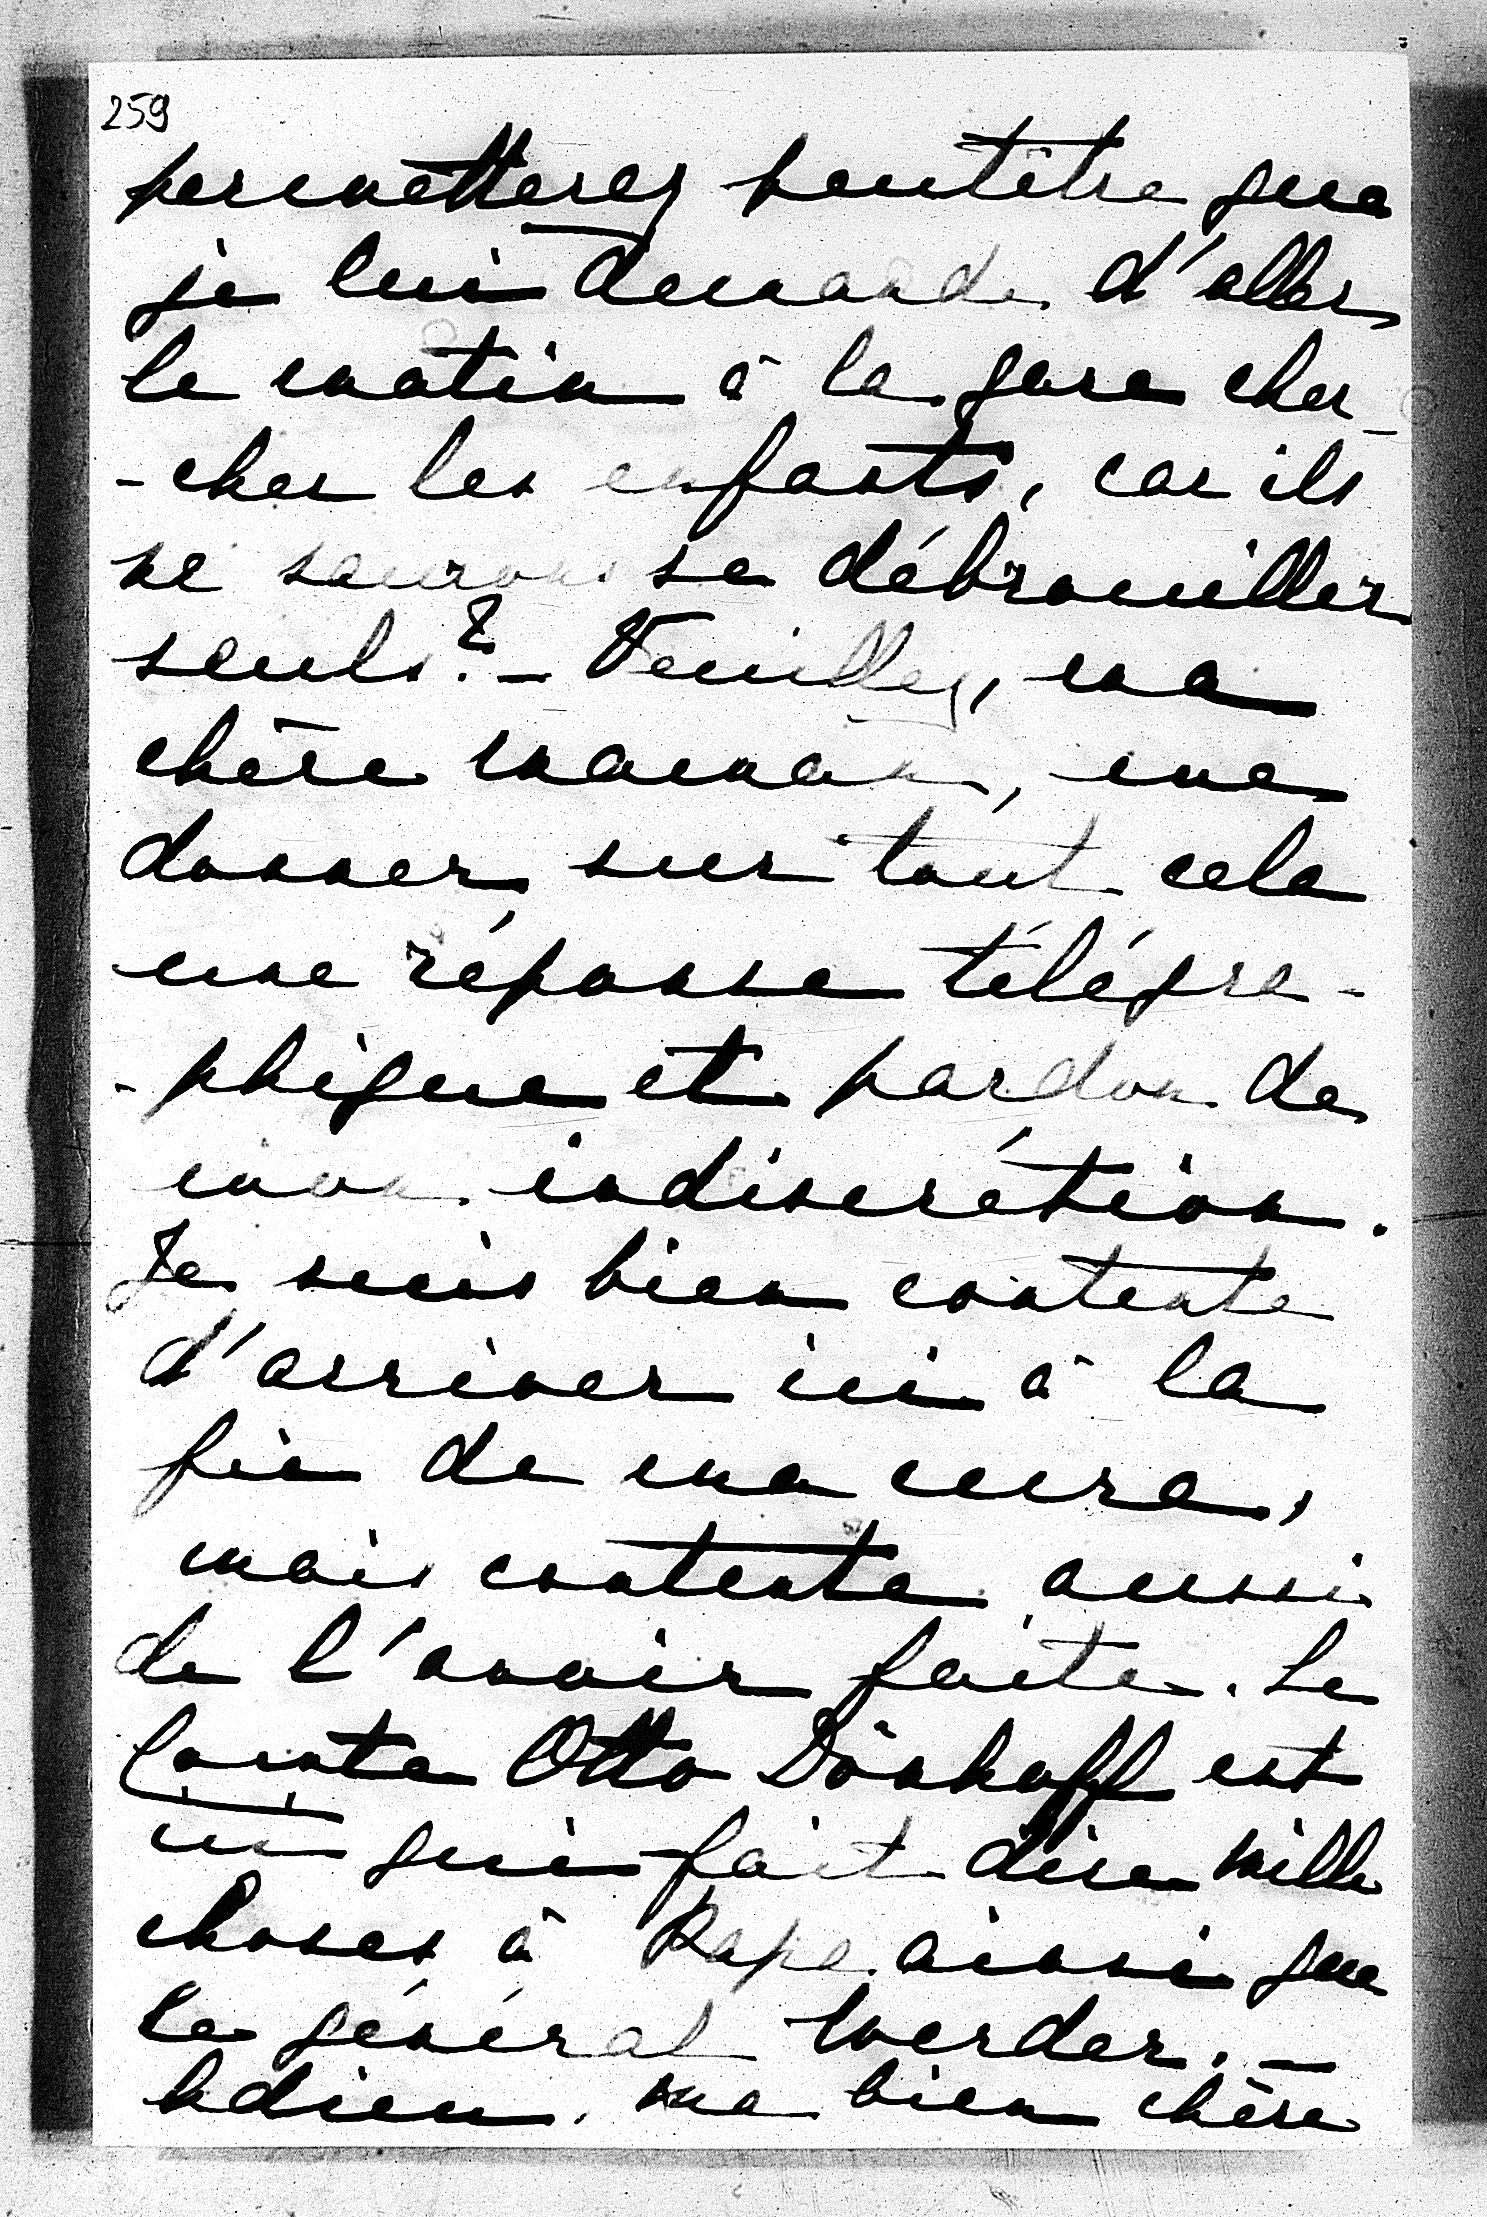 259
permetterez peutêtre que
je lui demande d'aller
le matin à la gare cher-
-cher les enfants, car ils
ne sauront se débrouiller
seuls? - Veuillez, ma
chère maman, me
donner sur tout cela
une réponse télégra-
-phique et pardon de
mon indiscrétion.
Je suis bien contente
d'arriver ici à la
fin de ma cure,
mais contente aussi
de l'avoir faite. Le
Comte Otto Dönhoff est
ici qui fait dire mille
choses à Papa ainsi que
le général Werder. -
Adieu, ma bien chère